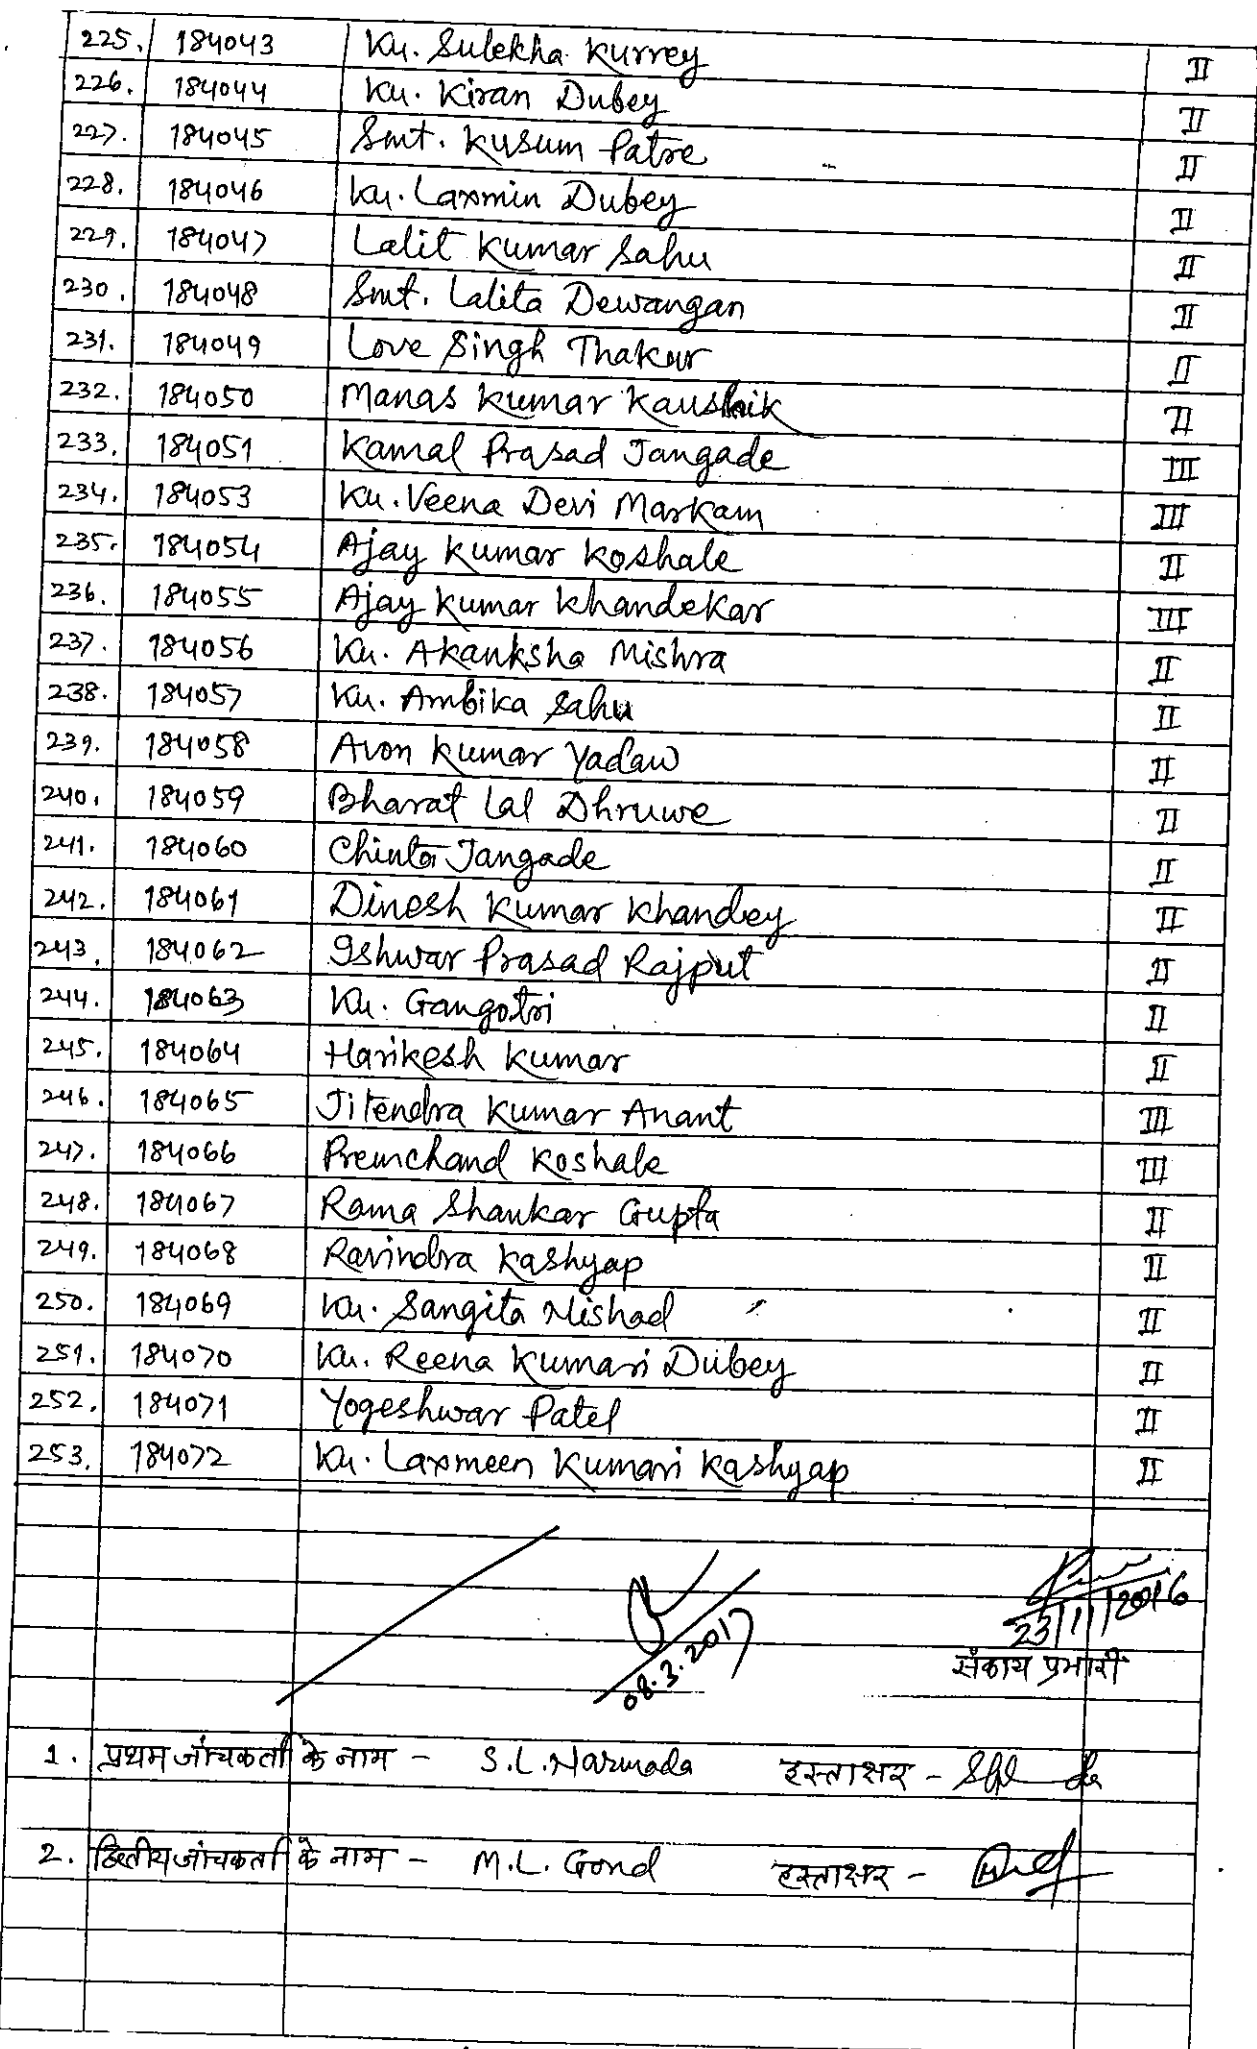 225. 184043 Ku. Sulekha Kurrey II
226. 184044 Ku. Kiran Dubey II
227. 184045 Smt. Kusum Patre II
228. 184046 Ku. Laxmin Dubey II
229. 184047 Lalit Kumar Sahu II
230. 184048 Smt. Lalita Dewangan II
231. 184049 Love Singh Thakur II
232. 184050 Manas Kumar Kaushik II
233. 184051 Kamal Prasad Jangade III
234. 184053 Ku. Veena Devi Markam III
235. 184054 Ajay Kumar Koshale II
236. 184055 Ajay Kumar Khandekar III
237. 184056 Ku. Akanksha Mishra II
238. 184057 Ku. Ambika Sahu II
239. 184058 Avon Kumar Yadaw II
240. 184059 Bharat Lal Dhruwe II
241. 184060 Chinta Jangade II
242. 184061 Dinesh Kumar Khandey II
243. 184062 Ishwar Prasad Rajput II
244. 184063 Ku. Gangotri II
245. 184064 Harikesh Kumar II
246. 184065 Jitendra Kumar Anant III
247. 184066 Premchand Koshale III
248. 184067 Rama Shankar Gupta II
249. 184068 Ravindra Kashyap II
250. 184069 Ku. Sangita Nishad II
251. 184070 Ku. Reena Kumari Dubey II
252. 184071 Yogeshwar Patel II
253. 184072 Ku. Laxmeen Kumari Kashyap II
23/11/2016
08.3.2017
संकाय प्रभारी
1. प्रथम जांचकर्ता के नाम - S.L. Narmada हस्ताक्षर -
2. द्वितीय जांचकर्ता के नाम - M.L. Gond हस्ताक्षर -